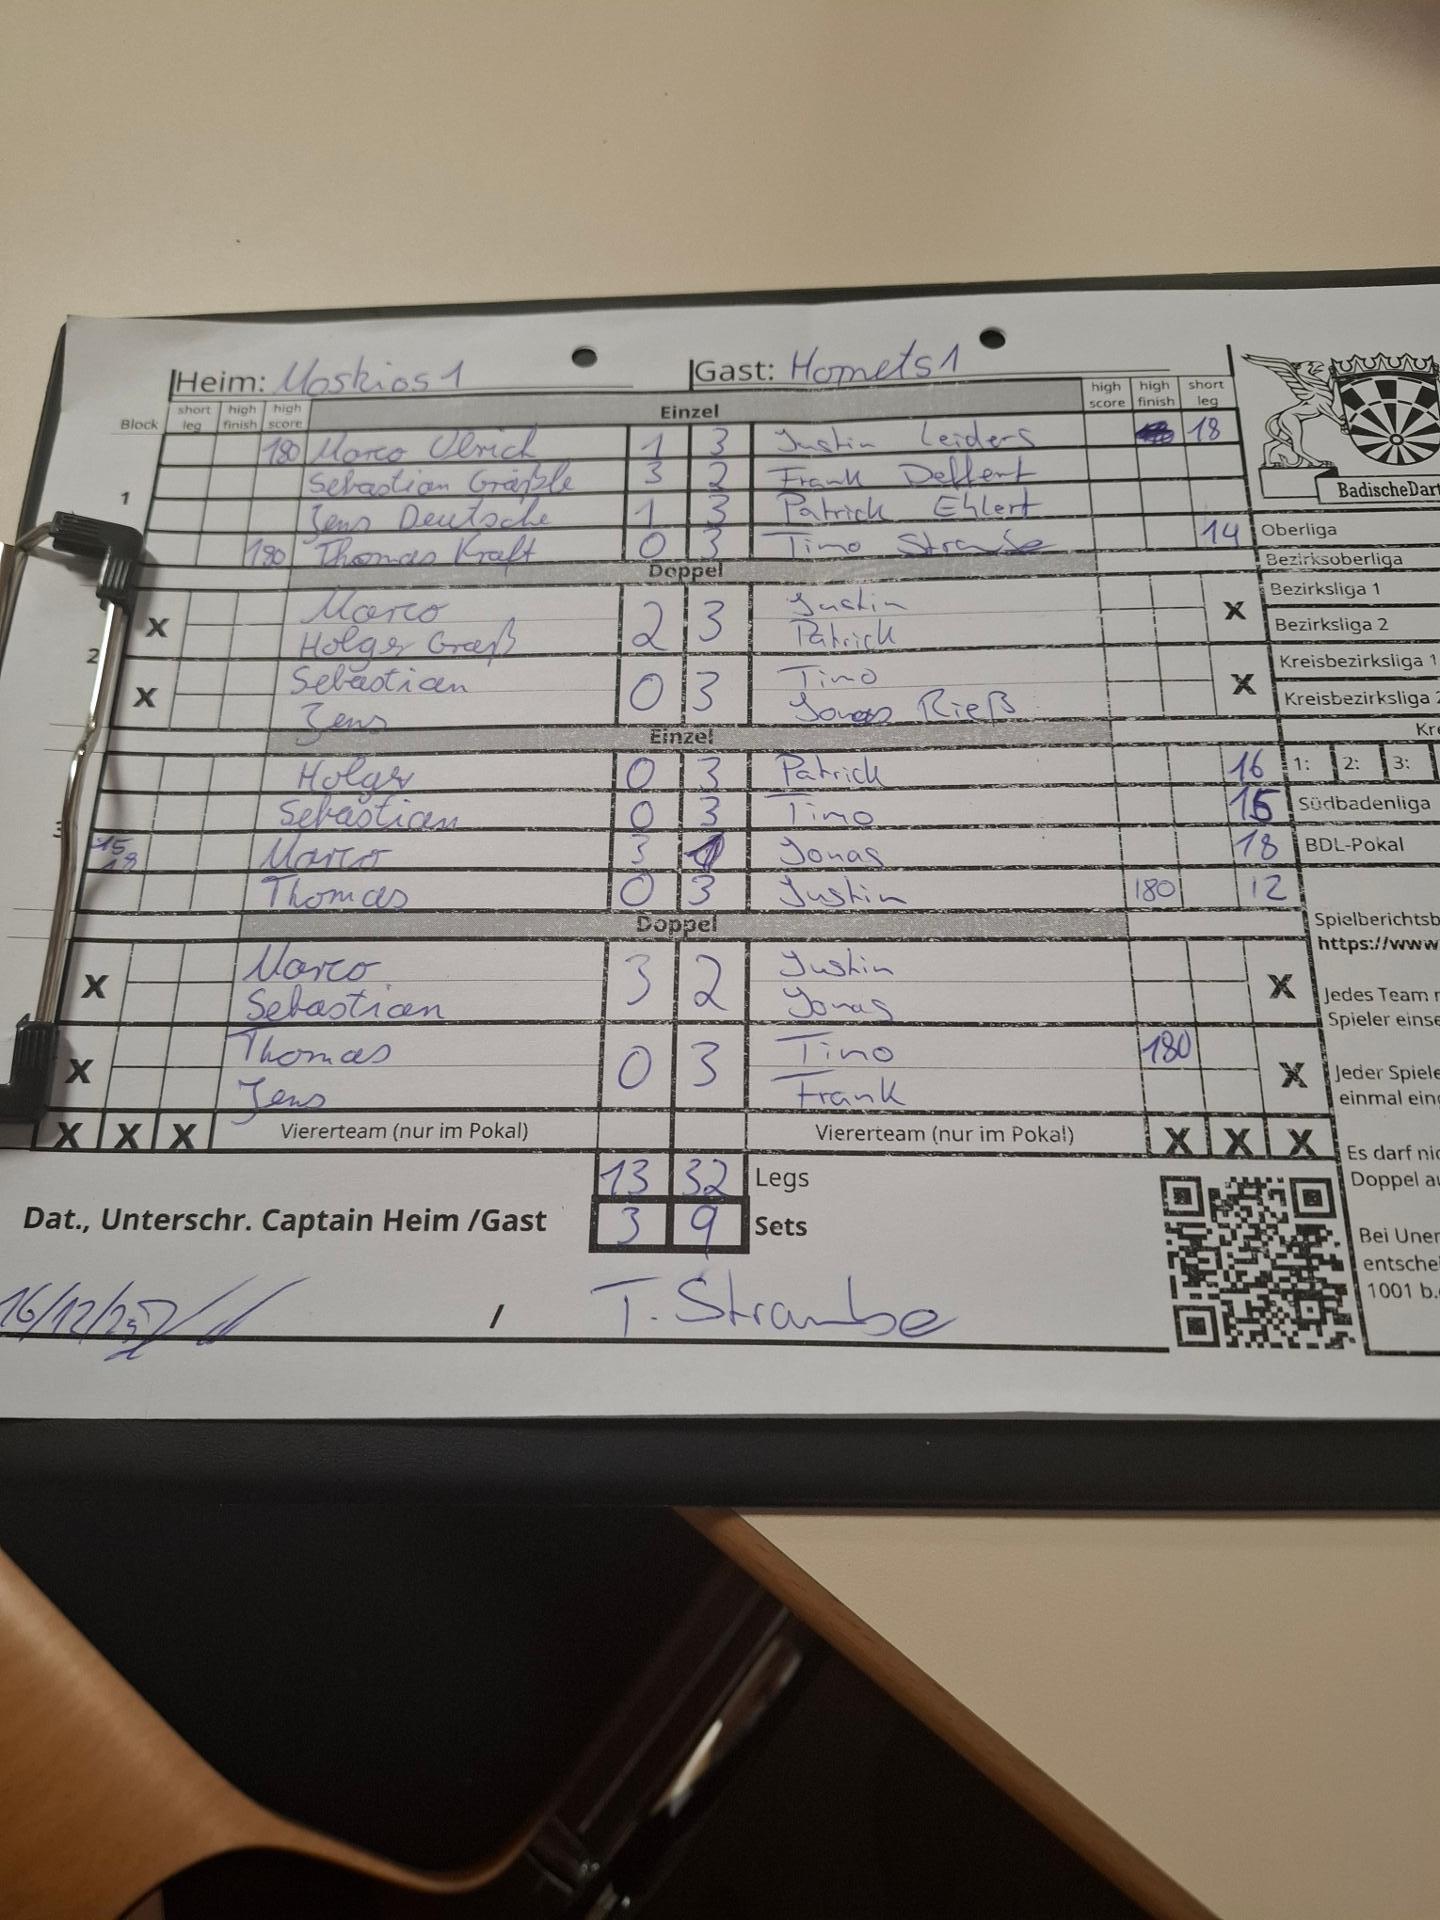 Heim: Moskios 1 Gast: Hornets 1
Block short leg high finish high score Einzel high score high finish short leg
180 Marco Ulrich 1 3 Justin Leiders 18
Sebastian Gräßle 3 2 Frank Deffert
1 Jens Deutsche 1 3 Patrick Ehlert
180 Thomas Kraft 0 3 Timo Straube 14
Doppel
X Marco 2 3 Justin X
Holger Graß Patrick
2
X Sebastian 0 3 Tino X
Jens Jonas Rieß
Einzel
Holger 0 3 Patrick 16
3 Sebastian 0 3 Tino 15
15 18 Marco 3 1 Jonas 18
Thomas 0 3 Justin 180 12
Doppel
X Marco 3 2 Justin X
Sebastian Jonas
X Thomas 0 3 Tino 180 X
Jens Frank
X X X Viererteam (nur im Pokal) Viererteam (nur im Pokal) X X X
13 32 Legs
Dat., Unterschr. Captain Heim /Gast 3 9 Sets
16/12/25 / T. Straube
BadischeDart
Oberliga
Bezirksoberliga
Bezirksliga 1
Bezirksliga 2
Kreisbezirksliga 1
Kreisbezirksliga 2
Kre
1: 2: 3:
Südbadenliga
BDL-Pokal
Spielberichtsb
https://www
Jedes Team
Spieler einse
Jeder Spiele
einmal ein
Es darf nic
Doppel au
Bei Uner
entschei
1001 b.